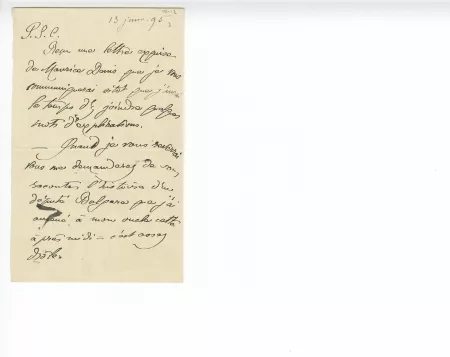 13 janv. 95
P.S.C.
Reçu une lettre exprès
de Maurice Denis que je vous
communiquerai sitôt que j'aurai
le temps d'y joindre quelques
mots d'explications.
— Quand je vous reverrai
vous me demanderez de vous
raconter l'histoire d'un
député que j'ai
amené à mon oncle cette
après midi — c'est assez
drôle.